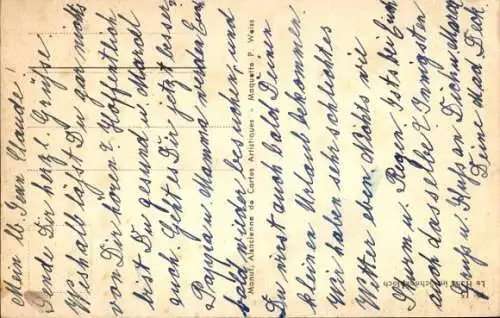 Mein lb. Jean Claude!
Sende Dir herzl. Grüsse.
Weshalb läst Du gar nichts
von Dir hören? Hoffentlich
bist Du gesund u. Marcel
auch. Geht es Dir jetzt besser
Pappa u. Mamma werden Euch
bald wieder besuchen, und
Du wirst auch bald Deinen
kleinen Urlaub bekommen.
Wir haben sehr schlechtes
Wetter eben. Nichts wie
Sturm u. Regen. Ists bei Euch
auch dasselbe? Innigsten
Gruss u. Küssen Dich u. Marcel
Deine Mad. Deck.
Manuf. Alsacienne de Cartes Artistiques - Maquette P. Weiss